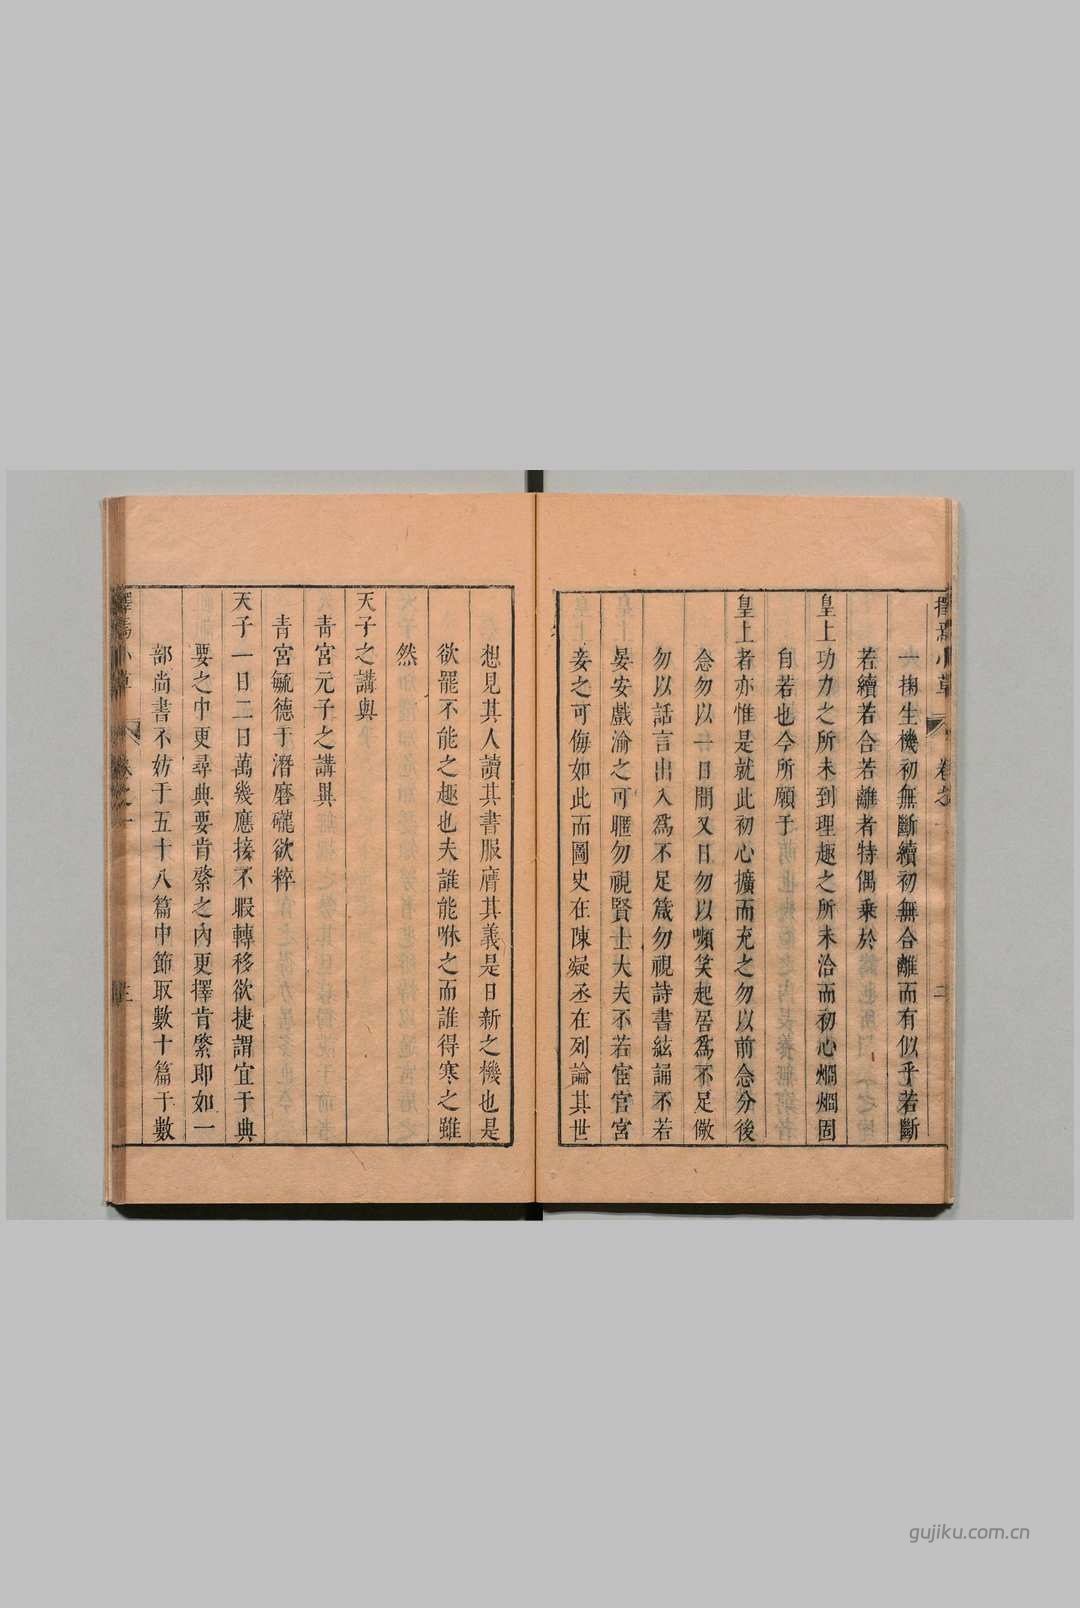 一掬生機初無斷續初無合離而有似乎若斷
若續若合若離者特偶乗於
皇上功力之所未到理趣之所未洽而初心烱烱固
自若也今所願于
皇上者亦惟是就此初心擴而充之勿以前念分後
念勿以今日間又日勿以嚬笑起居爲不足儆
勿以話言出入爲不足箴勿視詩書絃誦不若
晏安戲渝之可暱勿視賢士大夫不若宦官宮
妾之可侮如此而圖史在陳凝丞在列論其世
想見其人讀其書服膺其義是日新之機也是
欲罷不能之趣也夫誰能咻之而誰得寒之雖
然
天子之講與
青宮元子之講異
青宮毓德于潛磨礲欲粹
天子一日二日萬幾應接不暇轉移欲捷謂宜于典
要之中更尋典要肯綮之內更擇肯綮即如一
部尚書不妨于五十八篇中節取數十篇于數
小草 卷之一 三
gujiku.com.cn